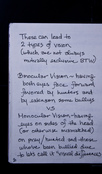 These can lead to
2 types of vision,
(which are not always
mutually exclusive, BTW)
Binocular Vision - having
both eyes face forward
favored by hunters and
by showing some bullings
VS
Monocular Vision - having
eyes on sides of the head
(or otherwise mismatched)
on prey/hunted and those
who've been bullied due
to let's call it "visual differences"